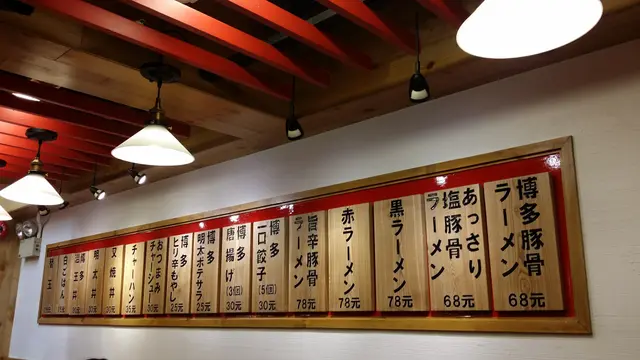 博多豚骨
ラーメン
68元
あっさり
塩豚骨
ラーメン
68元
黒ラーメン
78元
赤ラーメン
78元
旨辛豚骨
ラーメン
78元
博多
一口餃子
(5個)
30元
博多
唐揚げ
(3個)
30元
博多
明太ポテサラ
25元
博多
ピリ辛もやし
25元
おつまみ
チャーシュー
30元
チャーハン
35元
叉焼丼
明太丼
博多
温玉丼
白ごはん
替玉